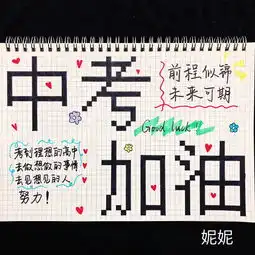 中考
前程似锦
未来可期
Good luck!
考到理想的高中
去做想做的事情
去见想见的人
努力！
加油
妮妮